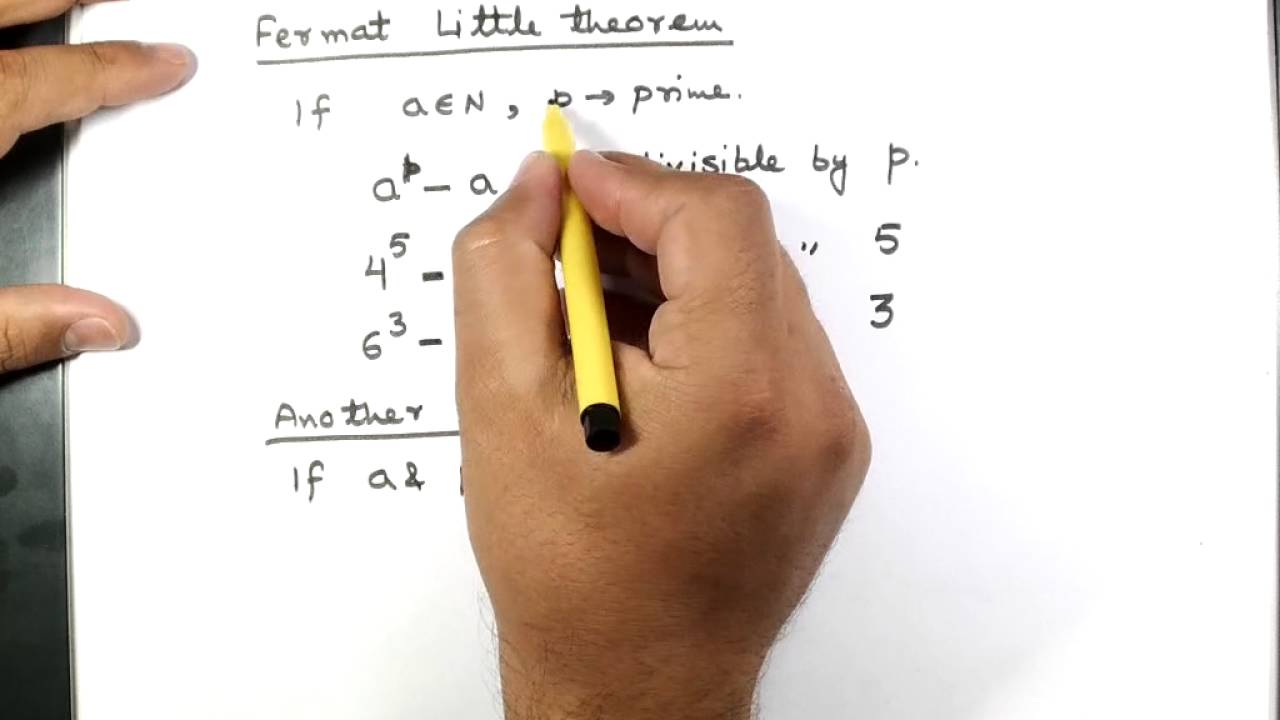 Fermat Little theorem
If a ∈ N, p → prime.
a^p - a divisible by p.
4^5 - " 5
6^3 - 3
Another
If a &